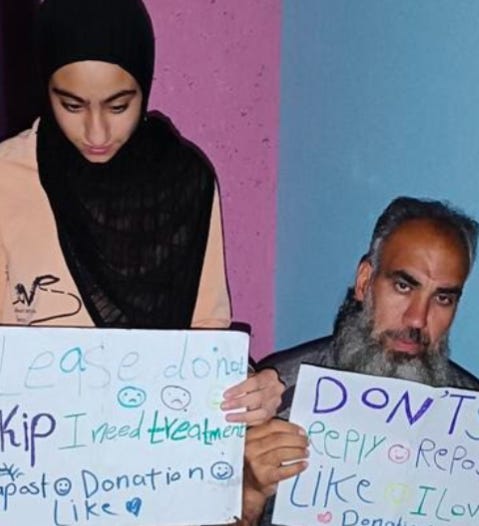 Please donot
Skip I need treatment
Repost Donation
Like
DON'TS
Reply Repos
Like I Lov
Dona